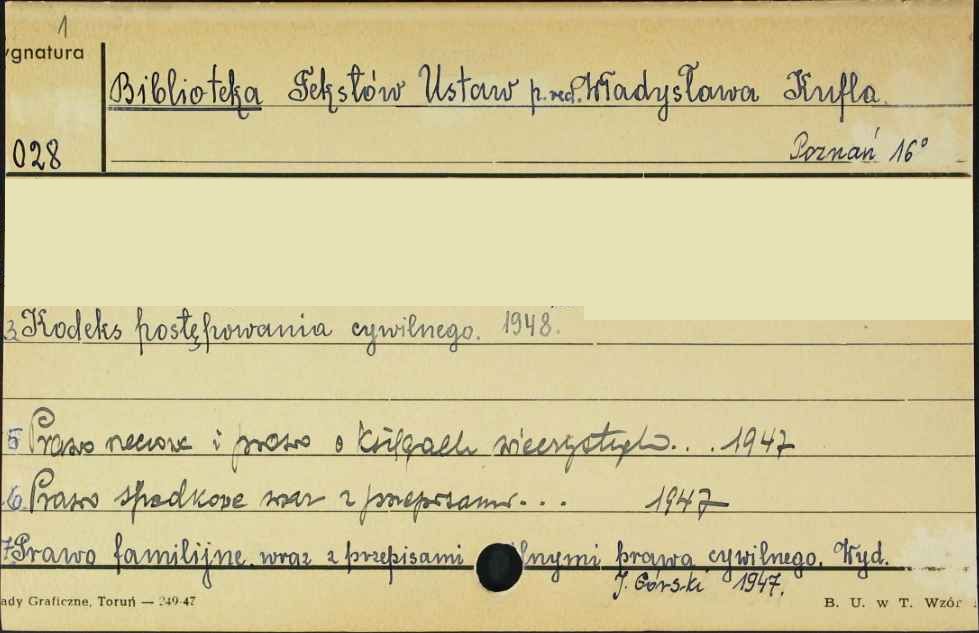 1
ygnatura
Biblioteka Tekstów Ustaw p. red. Władysława Kufla.
028
Poznań 16°
3 Kodeks postępowania cywilnego. 1948.
5 Prawo rzeczowe i prawo o księgach wieczystych... 1947
6. Prawo spadkowe wraz z przepisami... 1947
7. Prawo familijne wraz z przepisami lnymi prawa cywilnego. Wyd.
J. Górski 1947.
ady Graficzne, Toruń — 249-47
B. U. w T. Wzór